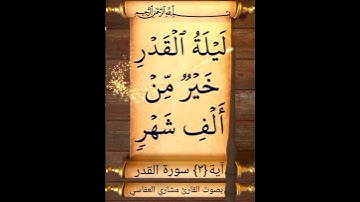 بِسْمِ اللَّهِ الرَّحْمَٰنِ الرَّحِيمِ
لَيْلَةُ ٱلْقَدْرِ
خَيْرٌ مِّنْ
أَلْفِ شَهْرٍ
آية {٣} سورة القدر
بصوت القارئ مشاري العفاسي